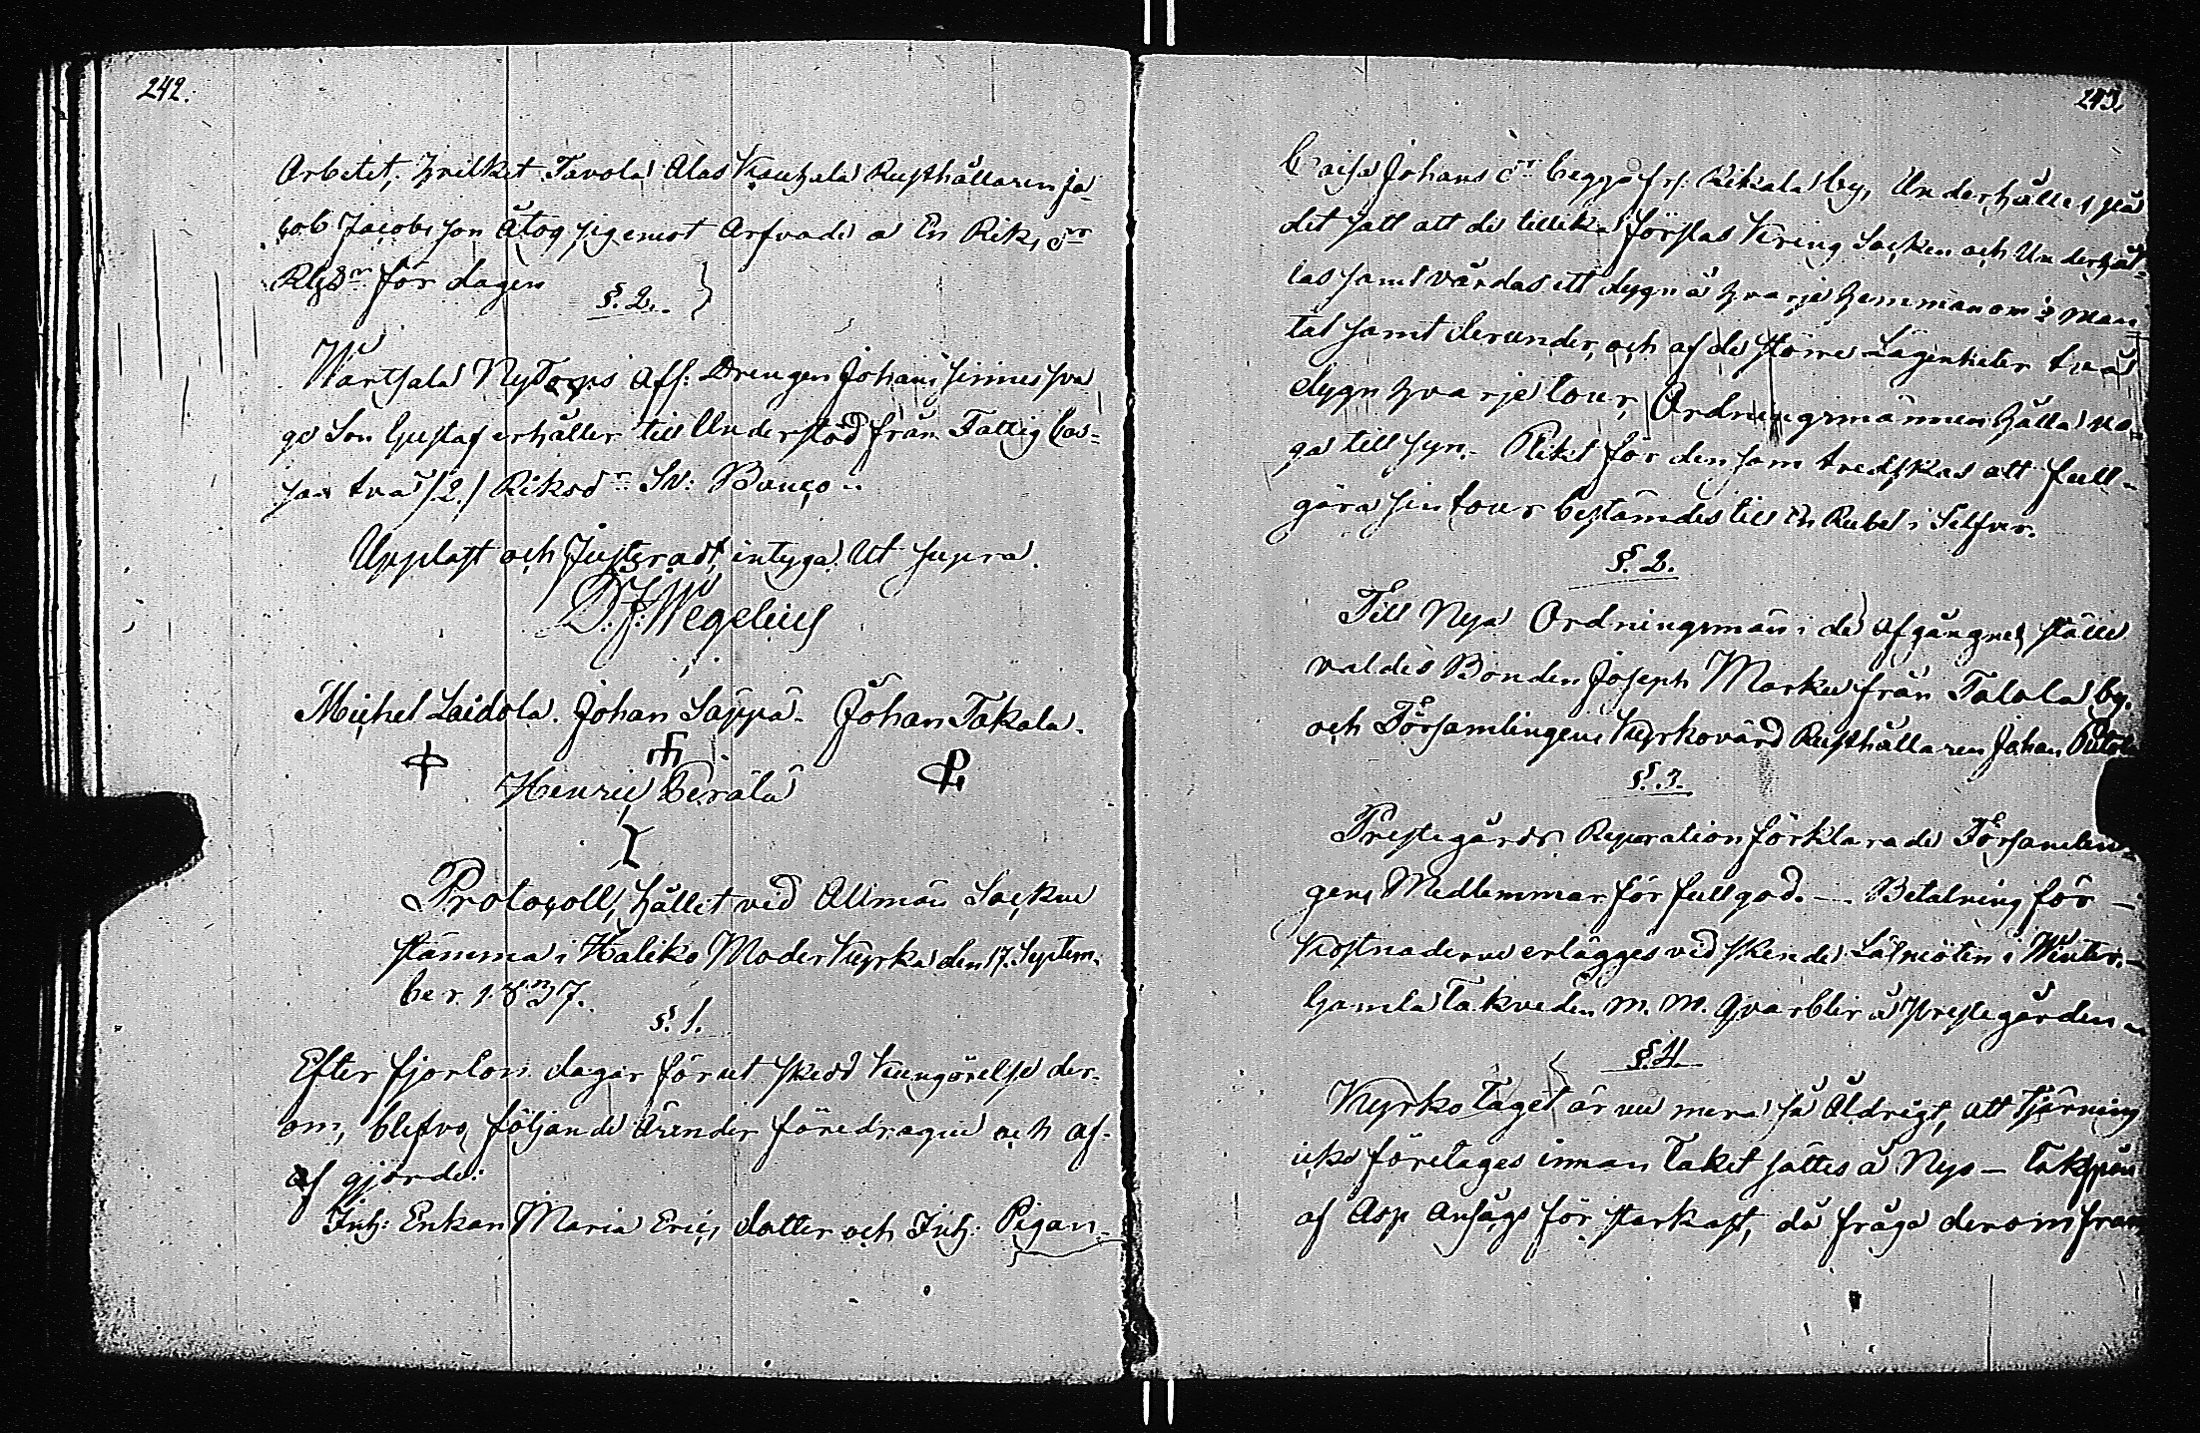 242.
Arbetet, hvilket Tavola Alas Kauhala Rusthållaren Ja-
cob Jacobsson åtog sig emot Arfvode a En Riksdr
Rgsdr för dagen
§. 2.
Wartsala Nytorps Aff: Drengen Johans sinnessva
ge Son Gustaf erhåller till Understöd från Fattig Cas-
san två /2./ Riksdr Sv: Banco.
Upplast och Justeradt, intyga Ut supra.
D. J. Wegelius
Michel Laidola. Johan Säppä. Johan Takala.
Henric Perälä
Protocoll, hållet vid Allmän Sockne
stämma i Haliko Moder Kyrka den 17. Septem-
ber 1837.
§. 1.
Efter fjorton dagar förut skedd Kungörelse der-
om, blefvo följande ärender föredragne och af-
af gjorde:
Inh: Enkan Maria Erics dotter och Inh: Pigan
243.
Caisa Johans dr begge frå Rikala by, Underhålles på
det satt att de tillika förslas kring Socken och Underhål-
las samt vårdas ett dygn å hvarje hemman om ½ man
tal samt derunder, och af de större Lägenheter två
dygn hvarje tour, Ordningsmännen hålla no-
ga till syn. Plikt för den som tredskas att full-
göra sin tour bestämdes till En Rubel i Silfver.
§. 2.
Till Nya Ordningsmän i de afgångnes ställe
valdes Bonden Joseph Marku från Talola by.
och Församlingens Kyrkovärd Rusthållaren Johan
§. 3.
Prestegårds Reparation förklarade Församlin-
gens Medlemmar för fullgod. — Betalning för
Kostnaderne erlägges vid skende Lälmöten i Winter.
Gamla Takveden m. m. qvarblir å Prestegården
§. 4.
Kyrko Taget är nu mera så Åldrigt, att Tjärning
icke företages innan Taket sättes å Nyo — Takspån
af Asp Ansågs för starkast, då fråga derom fram